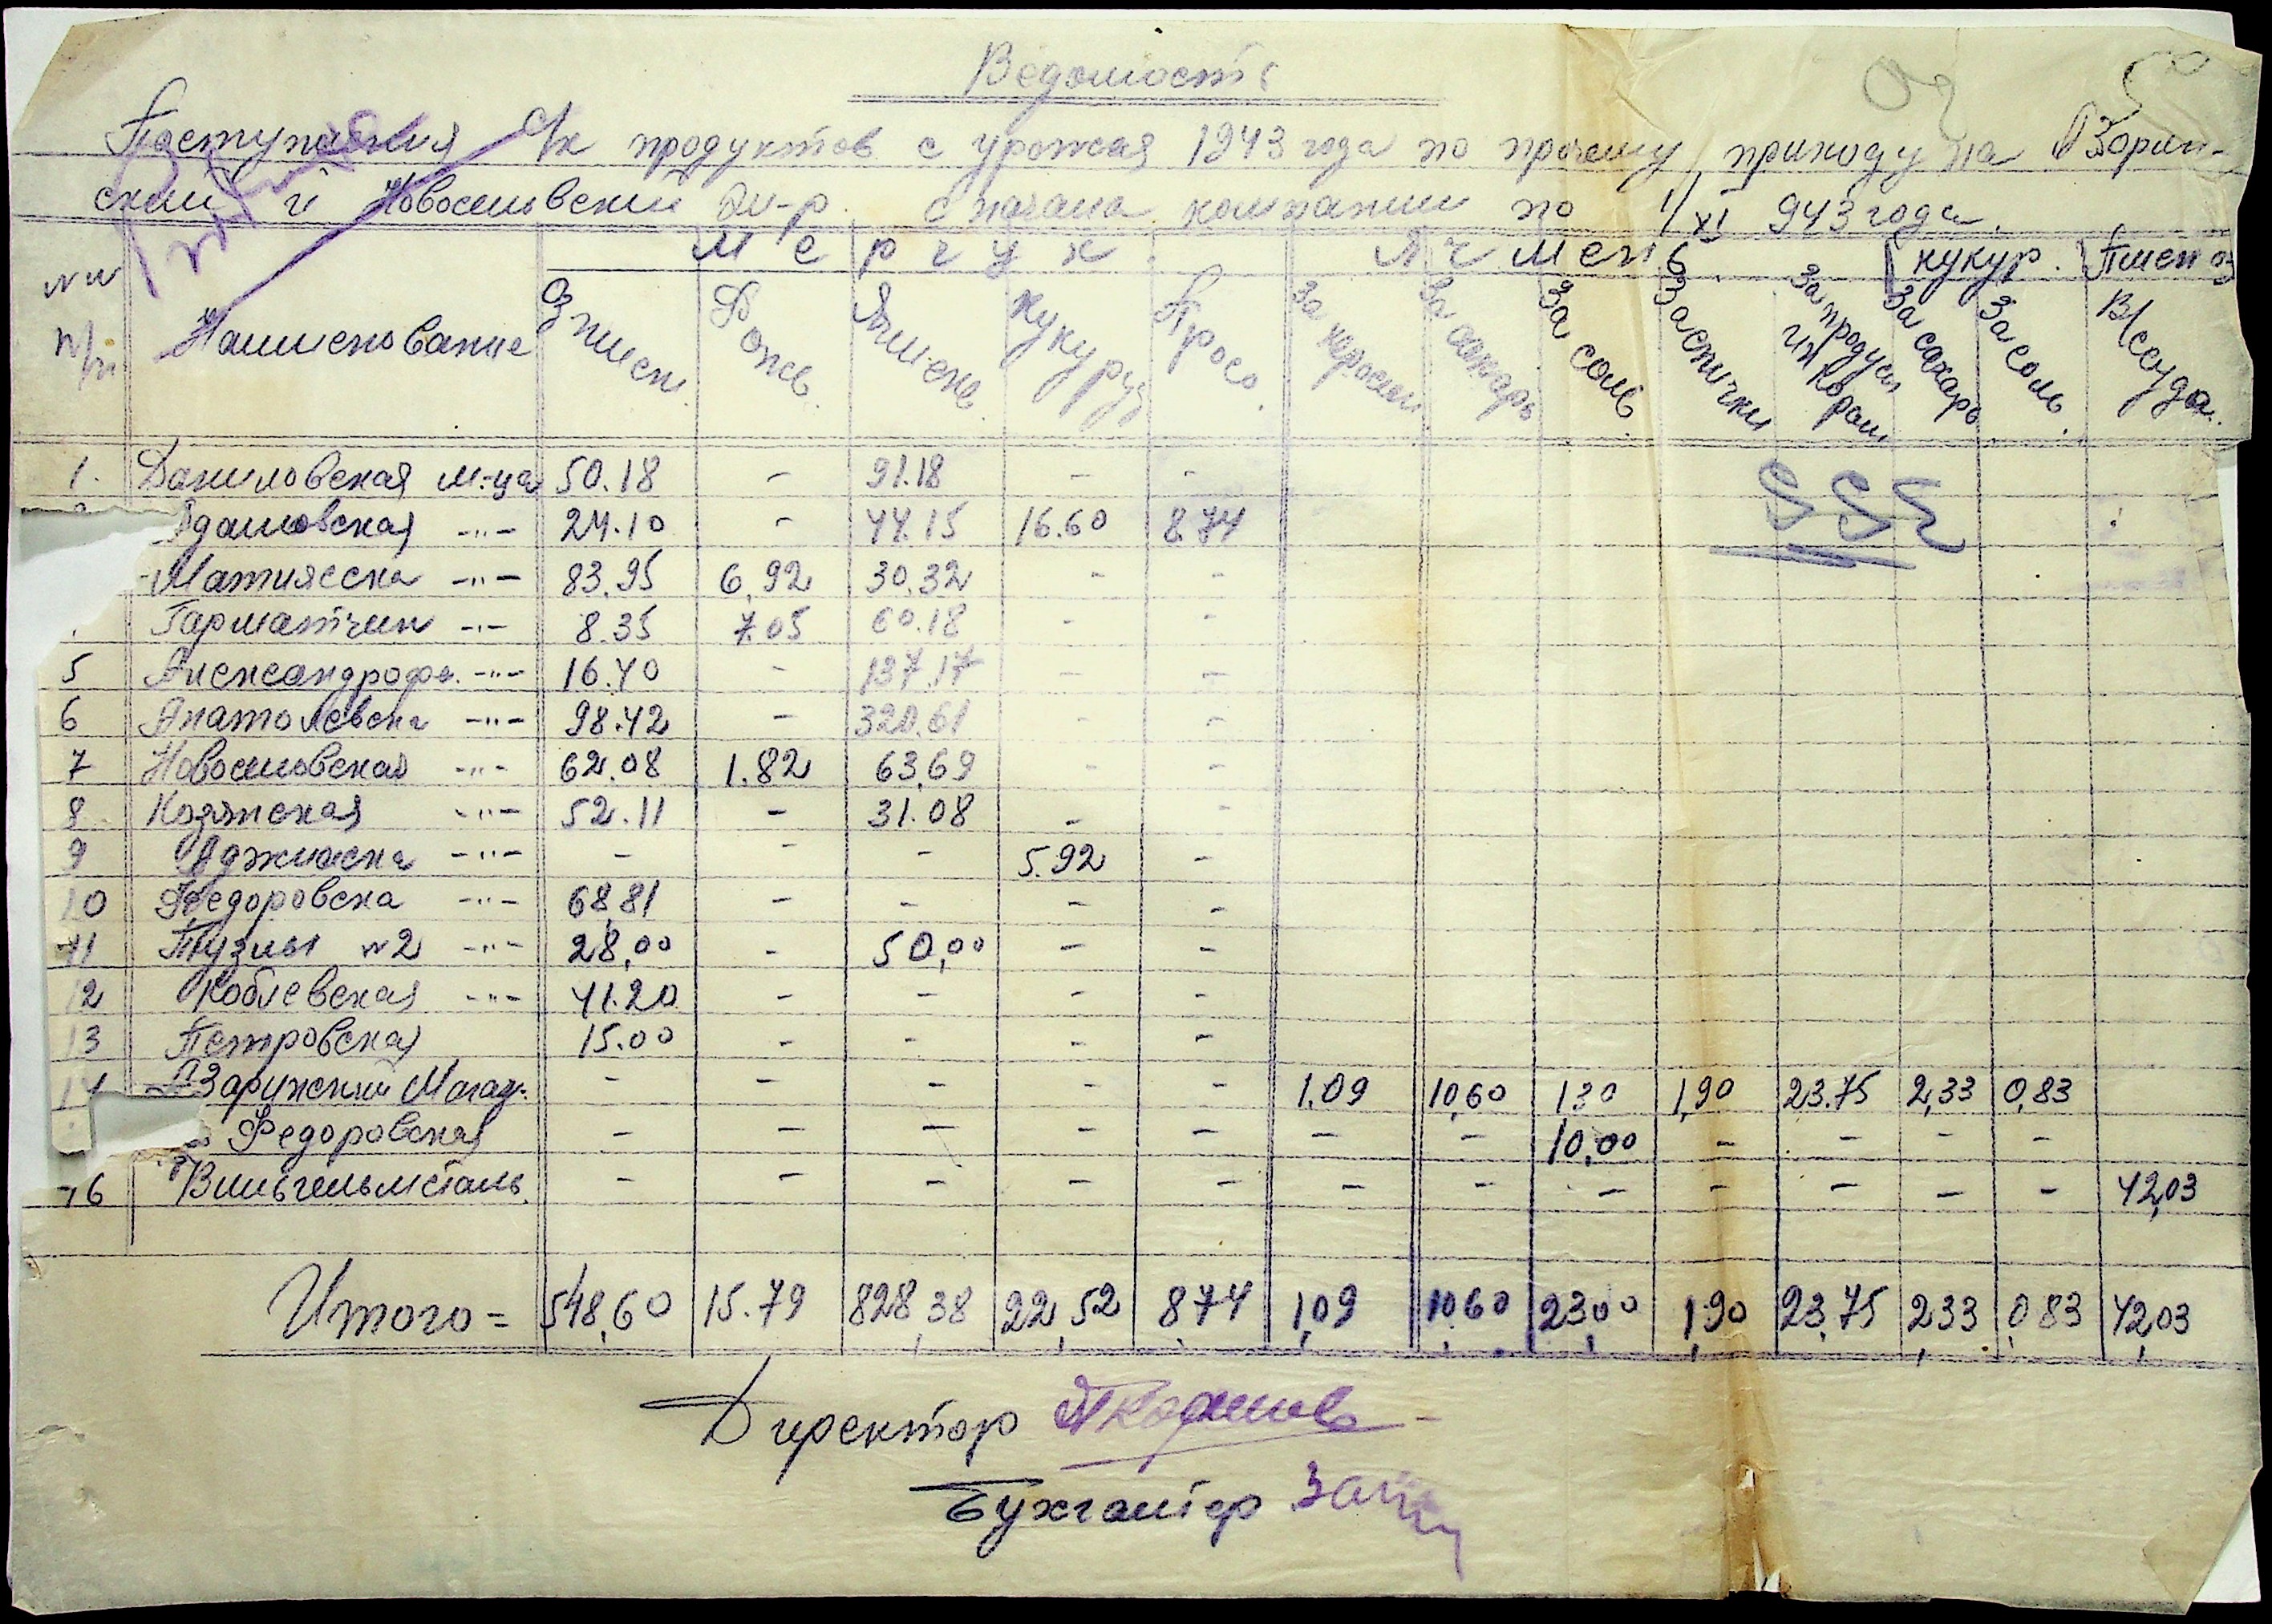 Ведомость
Поступления с/х продуктов с урожая 1943 года по прочему приходу на Взорин-
ский и Новосиловский эл-р. с начала компании по 1/XI 943 года.
Мерчук Ячмень кукур. Пшен оз
NN п/п Наименование Оз пшен. Рожь. Ячмень Кукуруз Просо. За керосин За сахарь За соль. За спички За продук За сахарь За соль. В/ссуда.
1. Даниловская м-ца 50.18 - 91.18 - -
Адамовская -"- 24.10 - 44.15 16.60 8.74
Матиясска -"- 83.95 6,92 30.32 - -
Гарматчин -"- 8.35 7.05 60.18 - -
5 Александрофе. -"- 16.40 - 137.17 - -
6 Анатолевска -"- 98.42 - 320.61 - -
7 Новосиловская -"- 62.08 1.82 63,69 - -
8 Козлжская -"- 52.11 - 31.08 - -
9 Аджиаска -"- - - - 5.92 -
10 Федоровска -"- 68,81 - - - -
11 Тузлы N2 -"- 28,00 - 50,00 - -
12 Коблевская -"- 41.20 - - - -
13 Петровская 15.00 - - - -
14 Взаринский Магаз. - - - - - 1.09 10,60 130 1,90 23.75 2,33 0,83
Федоровская - - - - - - - 10,00 - - - -
16 Вильгельмсталь. - - - - - - - - - - - - 42,03
Итого = 548,60 15.79 828,38 22,52 8.74 1,09 10,60 23,00 1,90 23,75 2,33 0,83 42,03
Директор
Бухгалтер